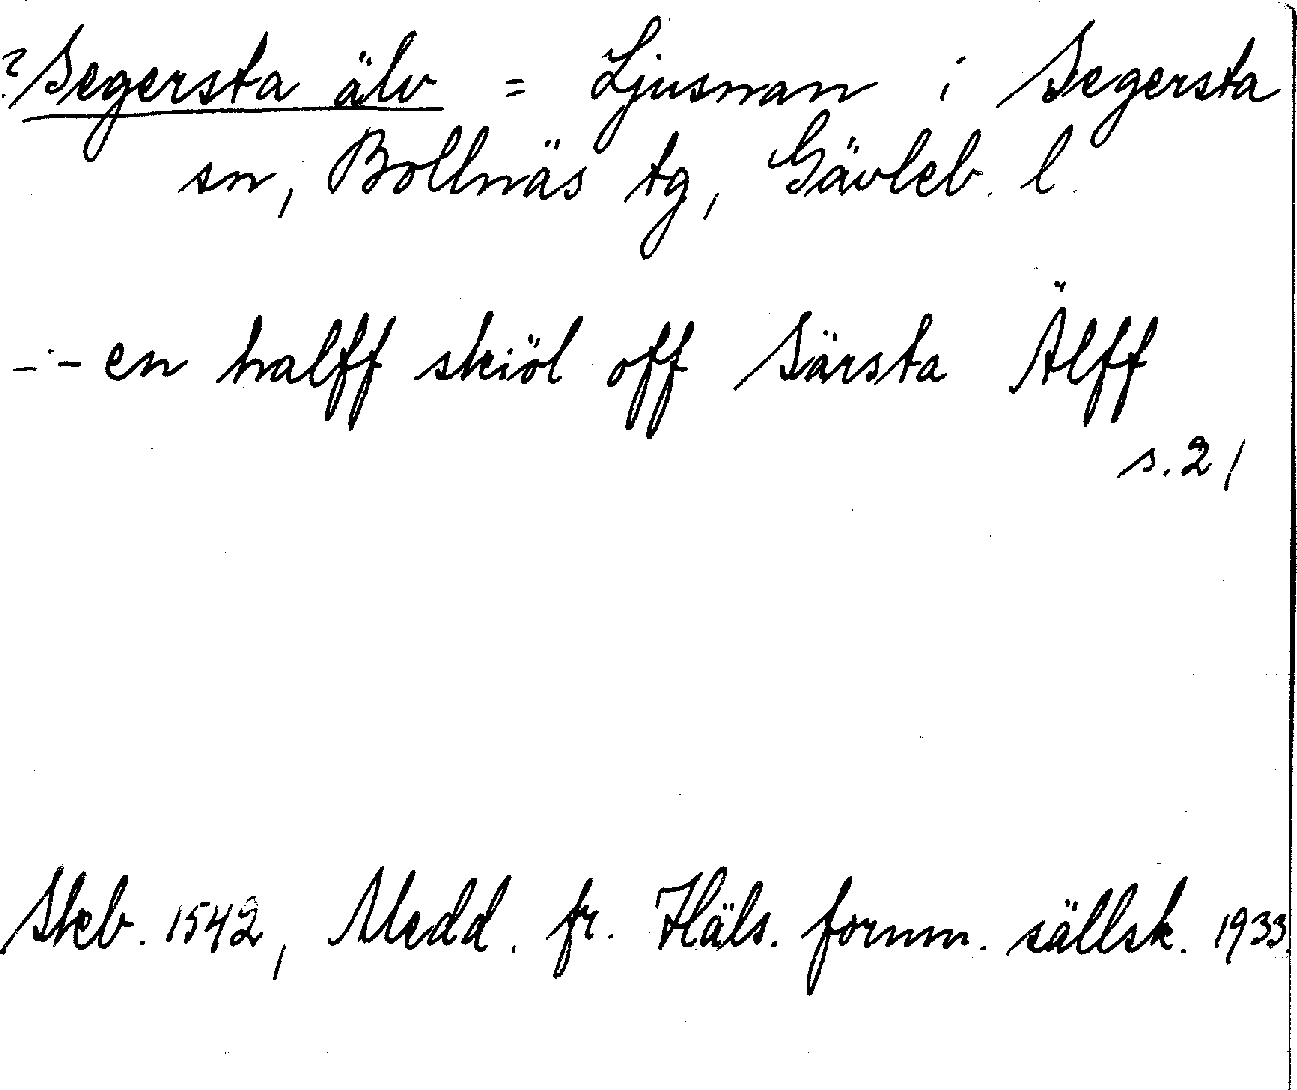 ? Segersta älv = Ljusnan i Segersta
sn, Bollnäs tg, Gävleb. l.
-·- en halff skiöl off Särsta Älff
s. 21
Skb. 1542, Medd. fr. Häls. fornm. sällsk. 1933.